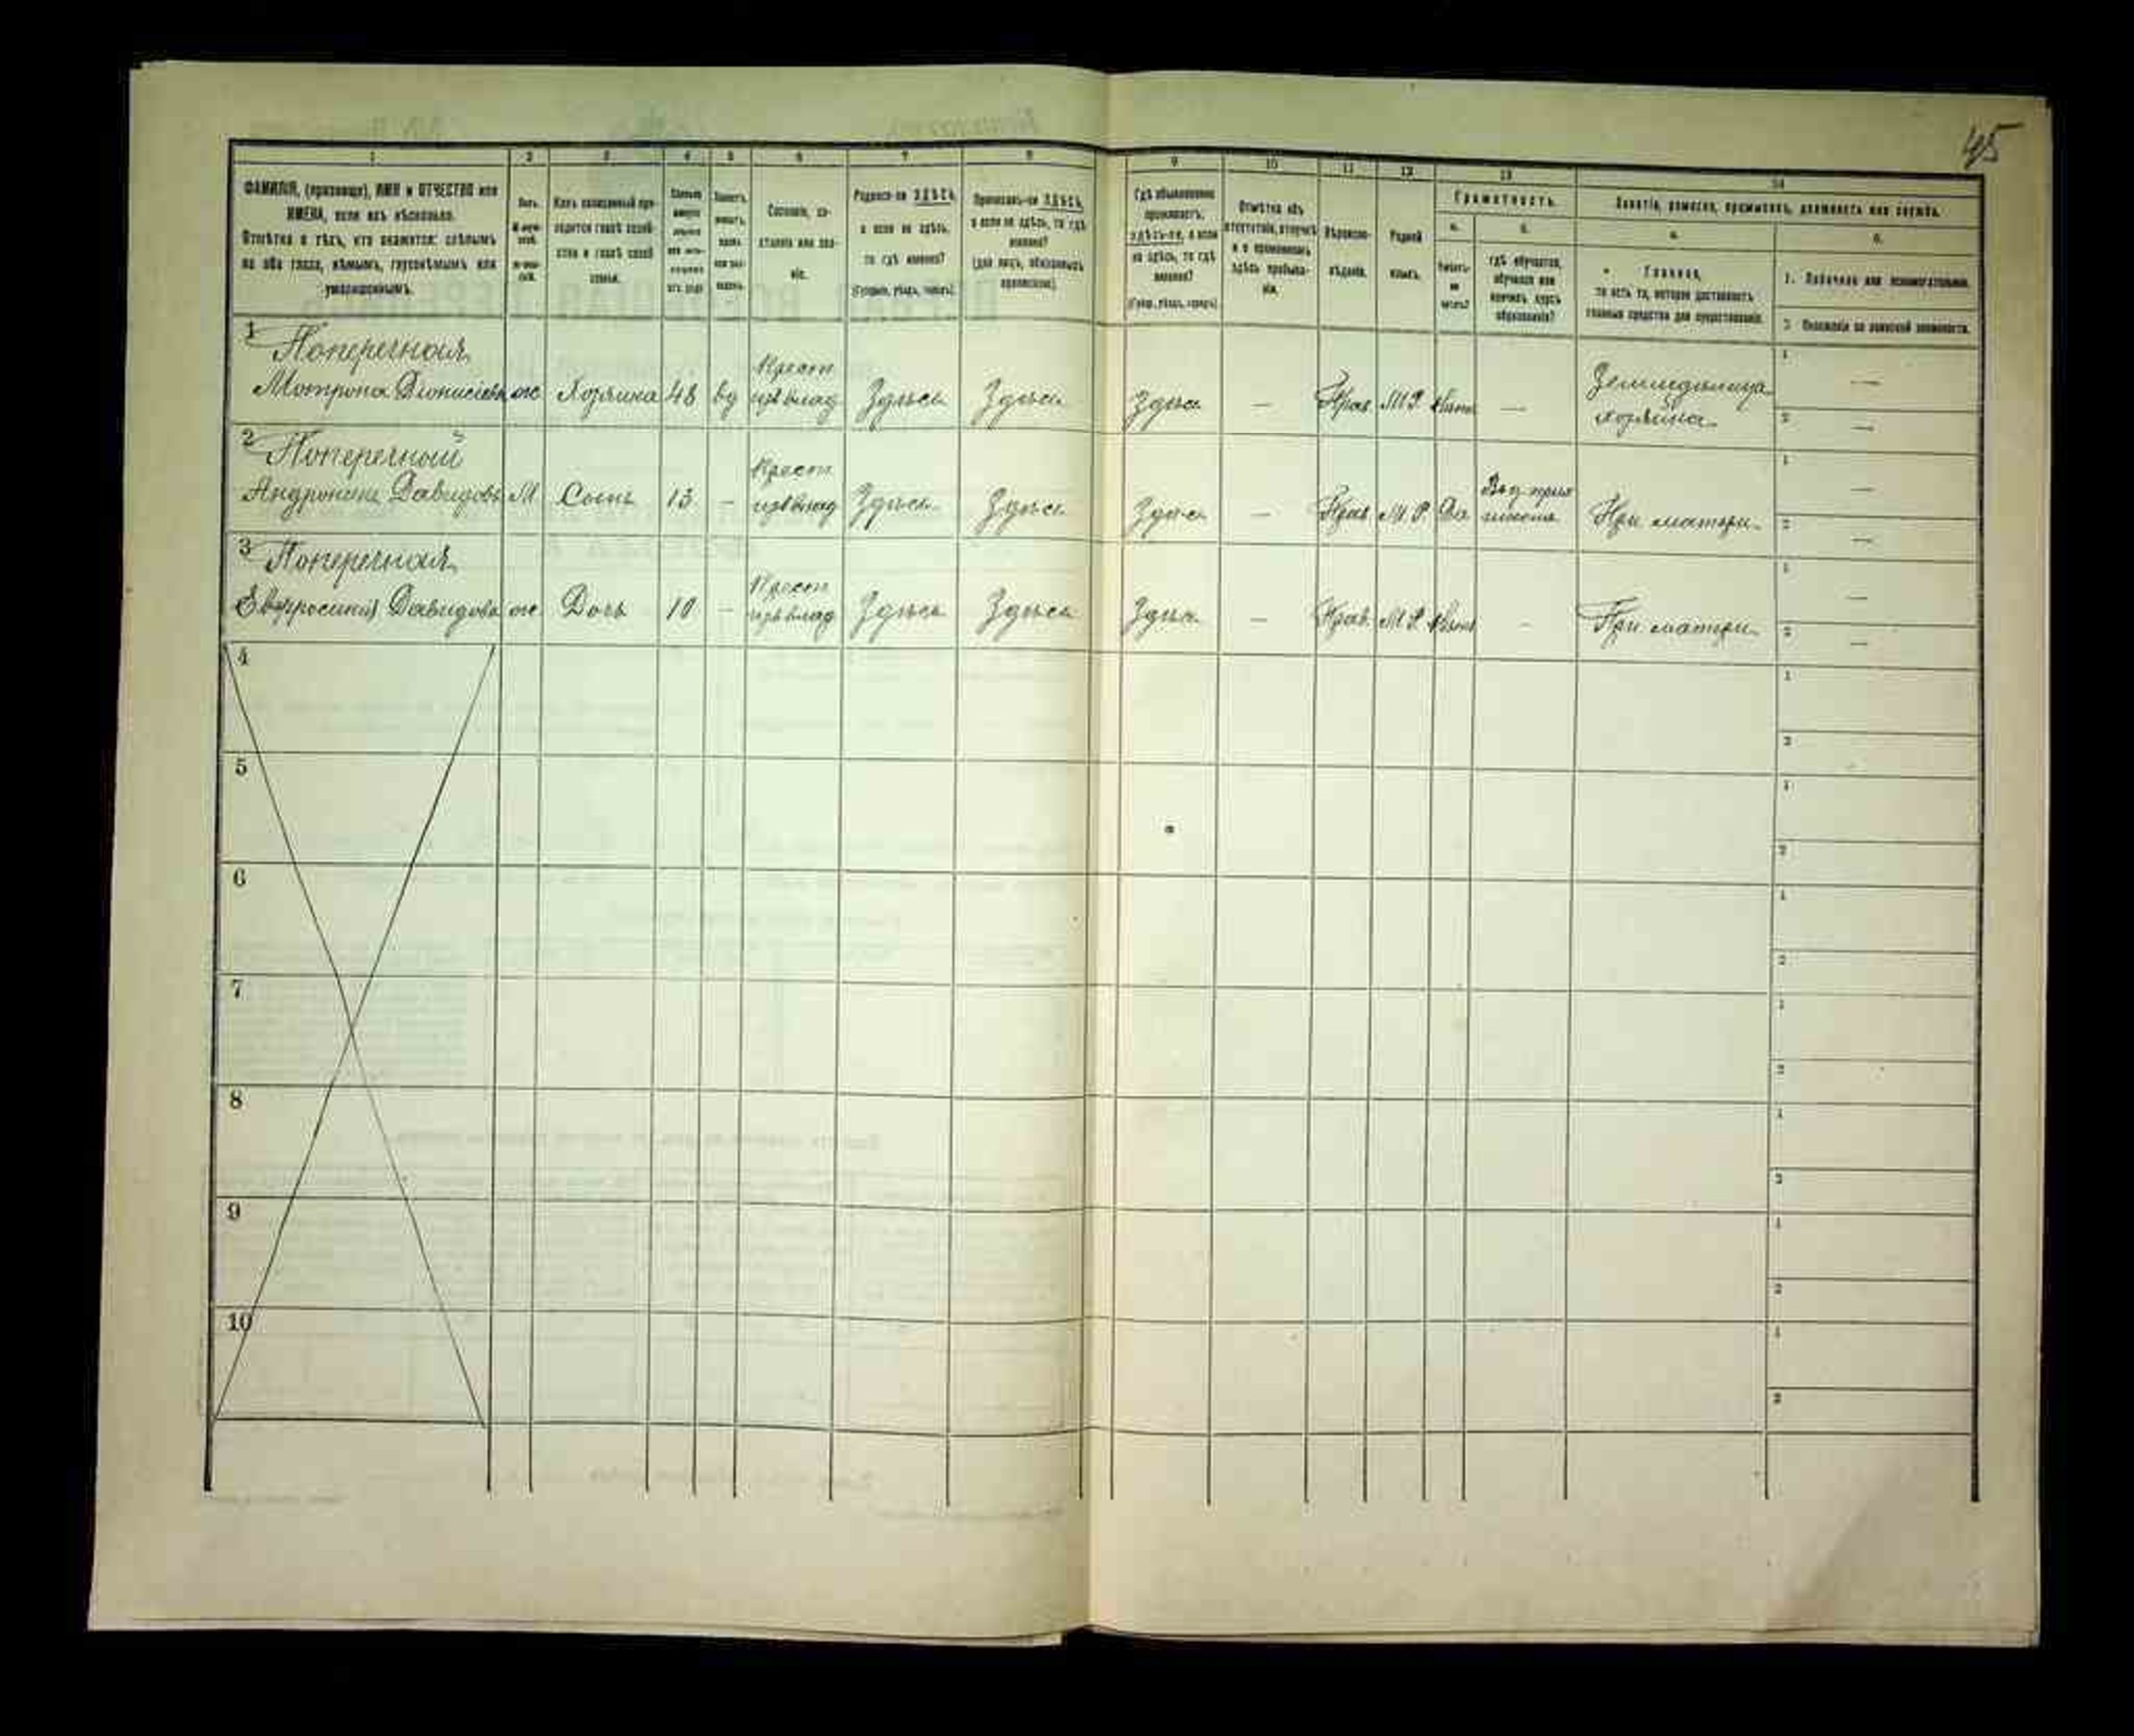 45
1 2 3 4 5 6 7 8 9 10 11 12 13 14
ФАМИЛІЯ, (прозвище), ИМЯ и ОТЧЕСТВО или
ИМЕНА, если ихъ нѣсколько.
Отмѣтка о тѣхъ, кто окажется: слѣпымъ
на оба глаза, нѣмымъ, глухонѣмымъ или
умалишеннымъ.
Полъ.
Какъ записанный при-
ходится главѣ хозяй-
ства и главѣ своей
семьи.
Сословіе, со-
стояніе или зва-
ніе.
Родился-ли ЗДѢСЬ,
а если не здѣсь,
то гдѣ именно?
(Губернія, уѣздъ, городъ)
Приписанъ-ли ЗДѢСЬ,
а если не здѣсь, то гдѣ
именно?
(для лицъ, обязанныхъ
припискою).
Гдѣ обыкновенно
проживаетъ:
здѣсь-ли, а если
не здѣсь, то гдѣ
именно?
(Губер., уѣздъ, городъ)
Отмѣтка объ
отсутствіи, отлучкѣ
и о временномъ
здѣсь пребыва-
ніи.
Вѣроиспо-
вѣданіе.
Родной
языкъ.
Грамотность.
а.
Умѣетъ-
ли
читать?
б.
гдѣ обучается,
обучался или
кончилъ курсъ
образованія?
Занятіе, ремесло, промыселъ, должность или служба.
а.
Главное,
то есть то, которое доставляетъ
главныя средства для существованія.
б.
1. Побочное или вспомогательное.
2. Положеніе по воинской повинности.
1 Поперечная
Мотрона Діонисіева ж Хозяика 48 вд Крест. изъ влад Здѣсь Здѣсь Здѣсь — Прав. М.Р. Нѣтъ — Земледѣлица хозяйка 1 — 2 —
2 Поперечный
Андроникъ Давидовъ М Сынъ 13 - Крест. изъ влад Здѣсь Здѣсь Здѣсь — Прав М.Р. Да При матери 1 — 2 —
3 Поперечная
Евфросинія Давидова ж Дочь 10 - Крест изъ влад Здѣсь Здѣсь Здѣсь — Прав. М.Р. Нѣтъ - При матери 1 — 2 —
4 1 2
5 1 2
6 1 2
7 1 2
8 1 2
9 1 2
10 1 2